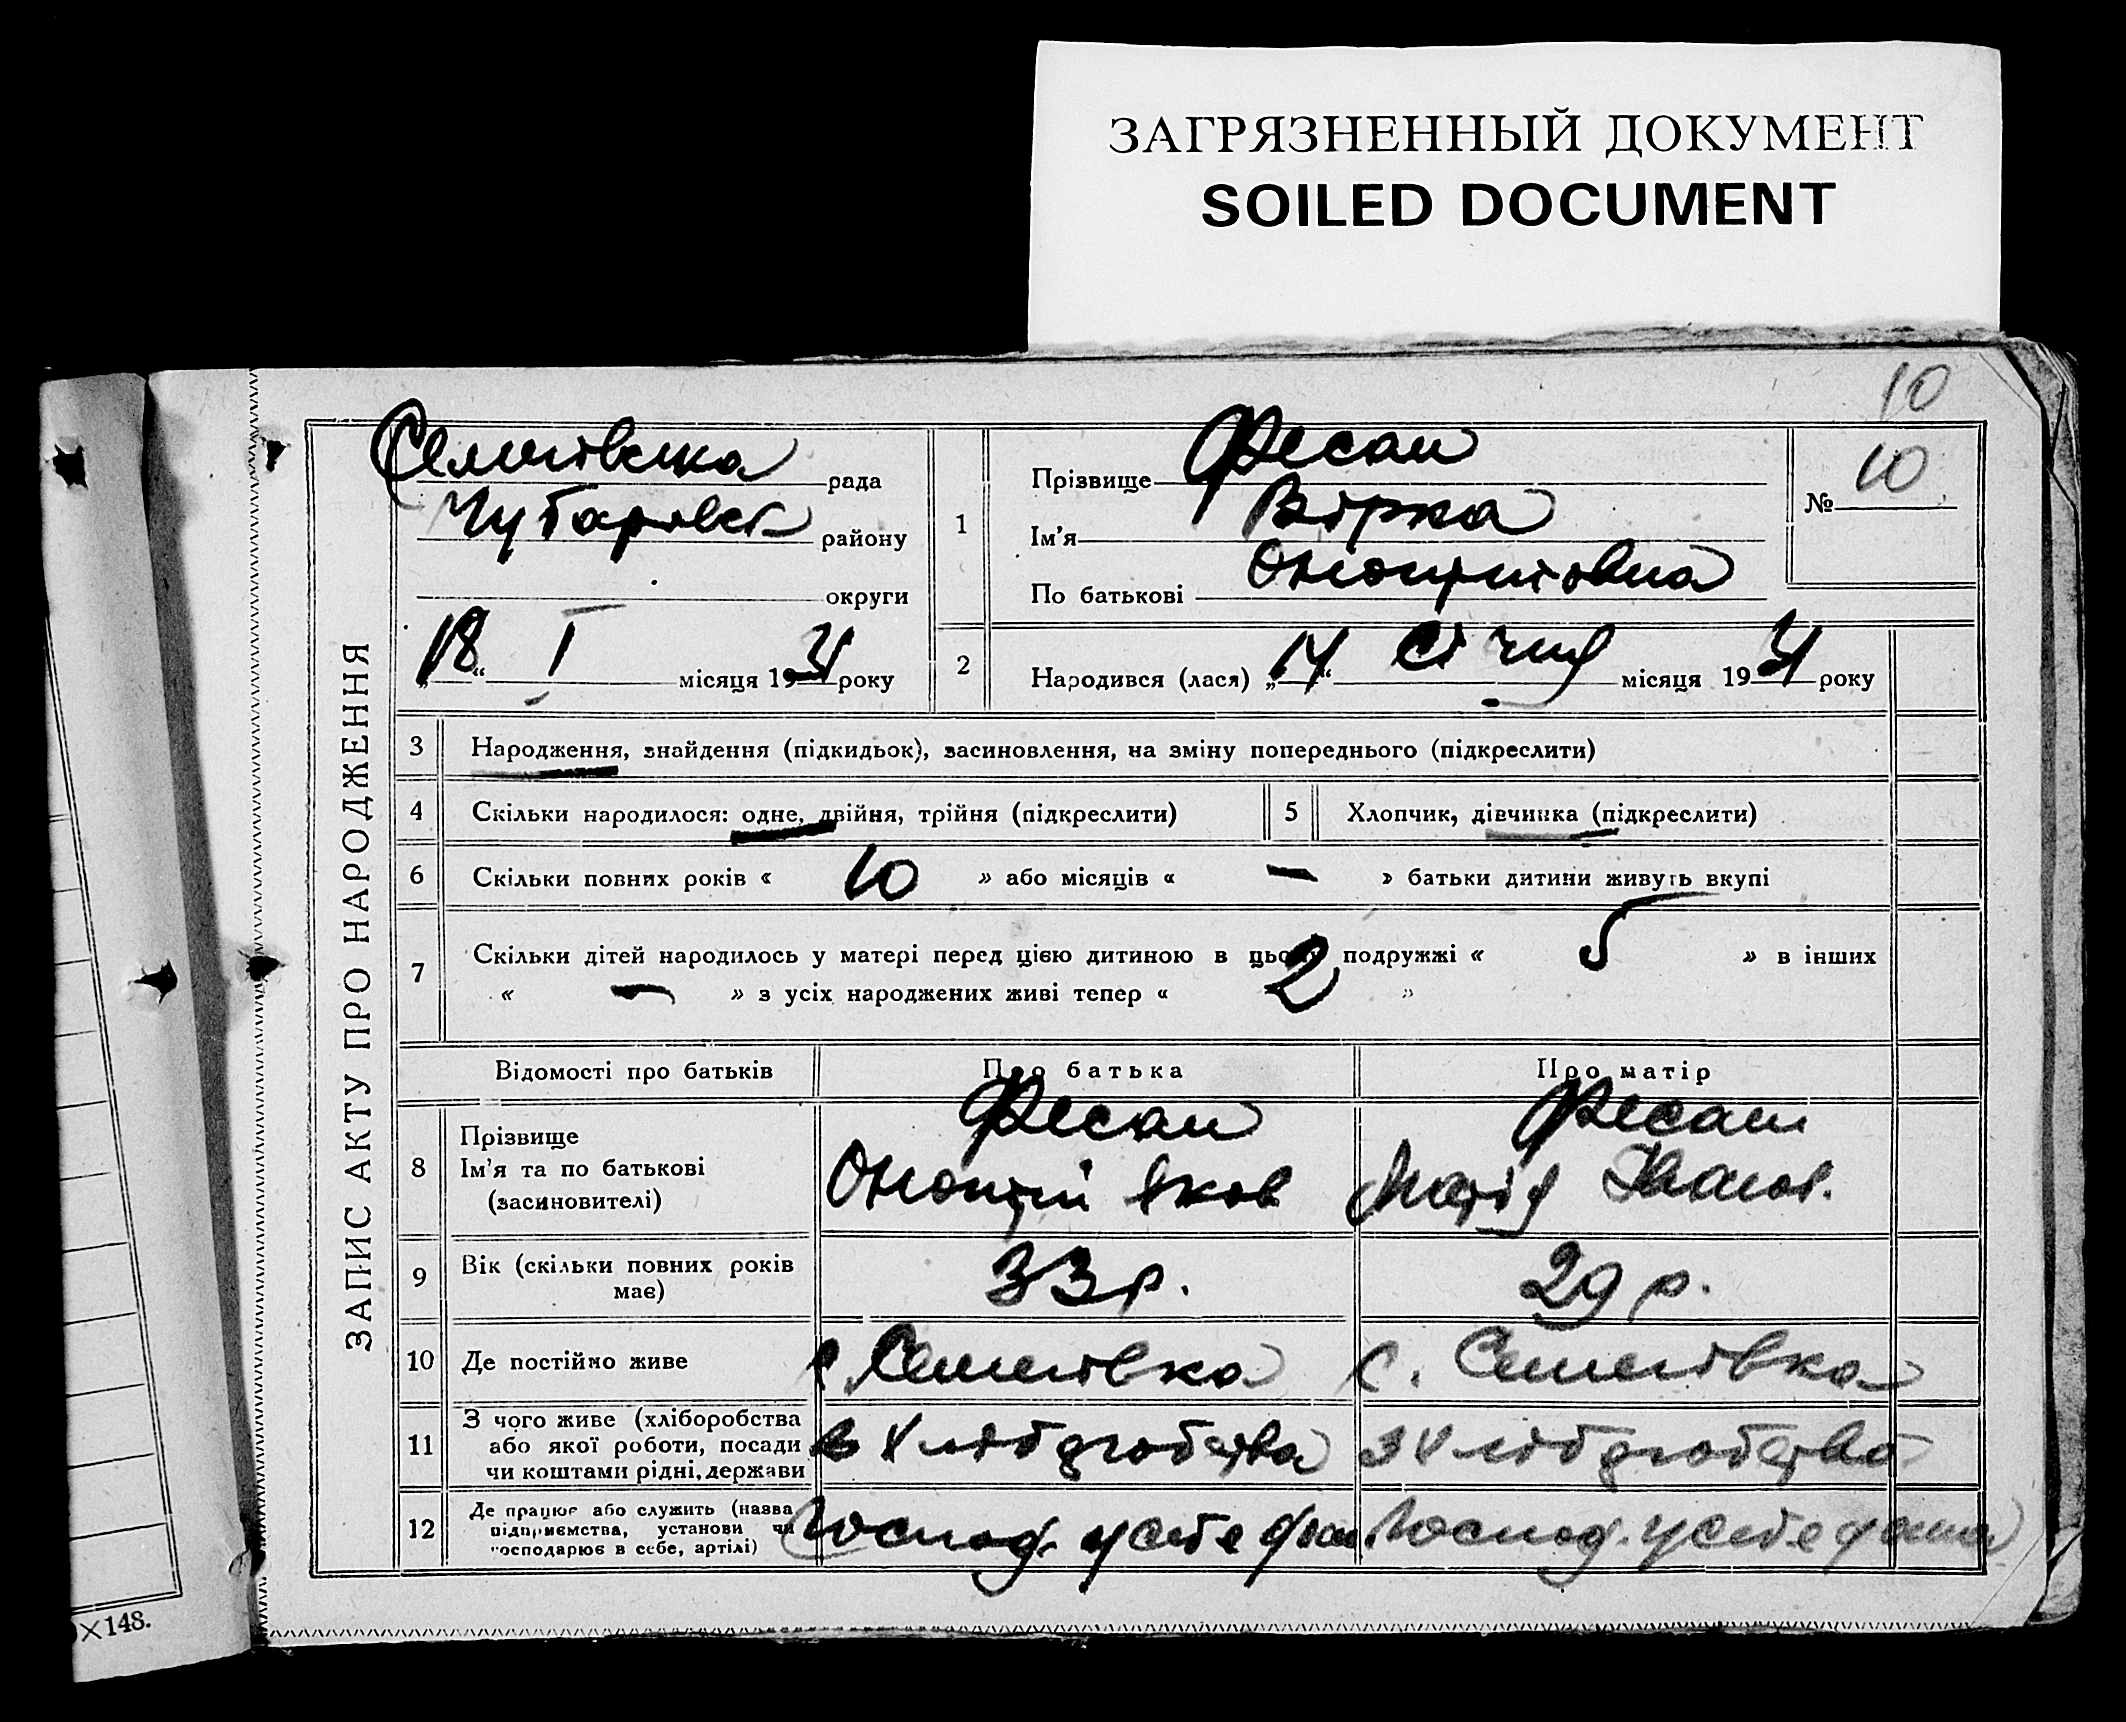 ЗАГРЯЗНЕННЫЙ ДОКУМЕНТ
SOILED DOCUMENT
10
ЗАПИС АКТУ ПРО НАРОДЖЕННЯ
Семенівська рада
Чубарівськ району
округи
„18“ I місяця 1931 року
1
Прізвище Фесан
Ім'я Вірка
По батькові
№ 10
2
Народився (лася) „14“ січня місяця 1931 року
3 Народження, знайдення (підкидьок), засиновлення, на зміну попереднього (підкреслити)
4 Скільки народилося: одне, двійня, трійня (підкреслити)
5 Хлопчик, дівчинка (підкреслити)
6 Скільки повних років « 10 » або місяців « — » батьки дитини живуть вкупі
7 Скільки дітей народилось у матері перед цією дитиною в цьому подружжі « 5 » в інших
« — » з усіх народжених живі тепер « 2 »
Відомості про батьків
Про батька
Про матір
8
Прізвище
Ім'я та по батькові
(засиновителі)
Фесан
Яков
Фесан
Марія Іванов.
9
Вік (скільки повних років
має)
33 р.
29 р.
10 Де постійно живе
с. Семенівка
с. Семенівка
11
З чого живе (хліборобства
або якої роботи, посади
чи коштами рідні, держави
з хліборобства
з хліборобства
12
Де працює або служить (назва
підприємства, установи чи
господарює в себе, артілі)
Господ. у себе
Господ. у себе
×148.